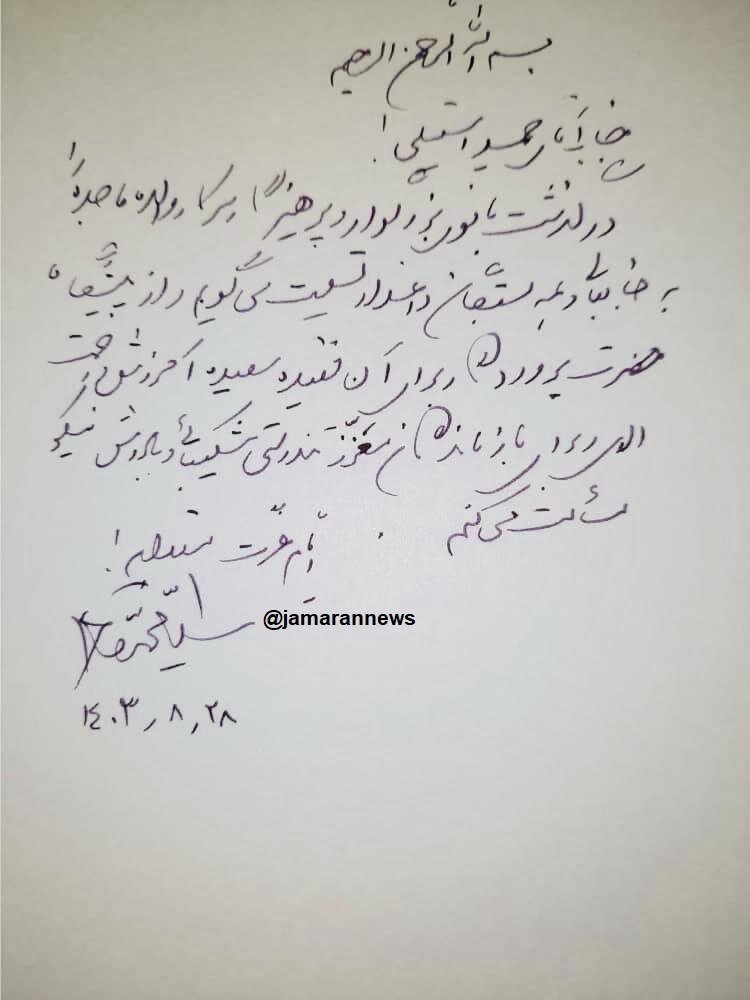 بسم الله الرحمن الرحیم
جناب آقای حمید استیلی!
درگذشت بانوی بزرگوار و پرهیزگار سرکار والده ماجده را
به جنابعالی و همه بستگان داغدار تسلیت می گویم و از پیشگاه
حضرت پروردگار برای آن فقیده سعیده آمرزش و رحمت
الهی و برای بازماندگان معزّز تندرستی شکیبائی و پاداش نیکو
مسألت می کنم.
ایام عزت مستدام!
سید محمد خاتمی
@jamarannews
۱۴۰۳٫۸٫۲۸